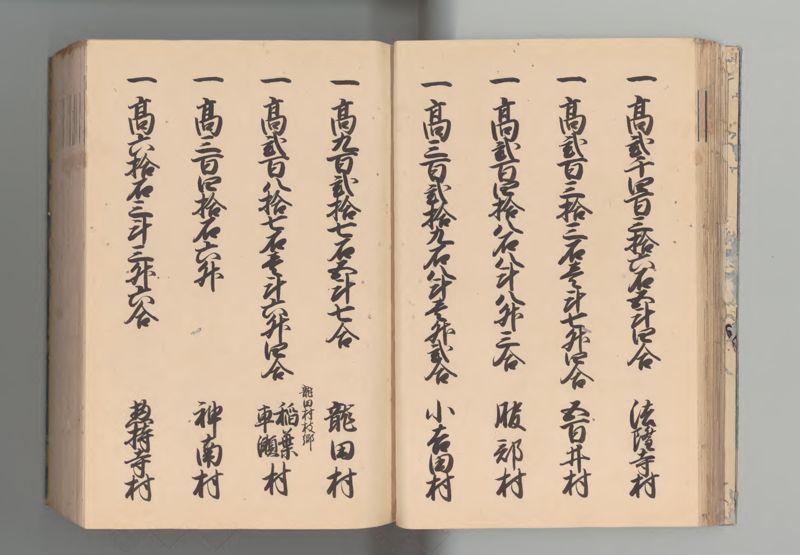 一 高弐千四百三拾六石五斗四合 法隆寺村
一 高弐百三拾三石壱斗七升四合 五百井村
一 高弐百四拾八石八斗八升三合 服部村
一 高三百弐拾九石八斗壱升弐合 小吉田村
一 高九百弐拾七石五斗七合 龍田村
一 高弐百八拾七石壱斗六升四合 龍田村枝郷 稲葉車瀬村
一 高三百四拾石六升 神南村
一 高六拾石三斗三升六合 惣持寺村